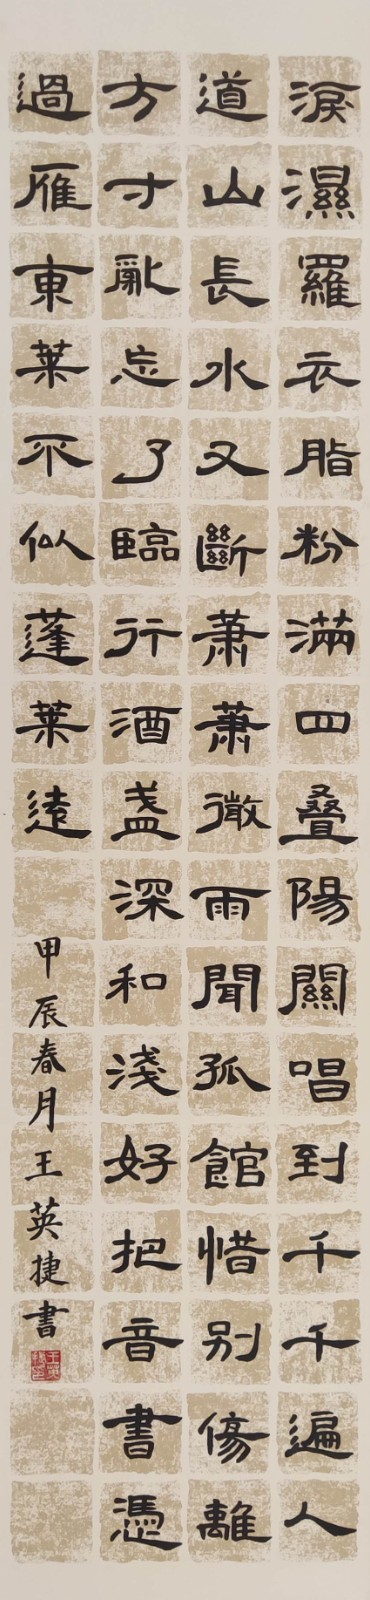 淚濕羅衣脂粉滿四叠陽關唱到千千遍人
道山長水又斷蕭蕭微雨聞孤館惜別傷離
方寸亂忘了臨行酒盞深和淺好把音書憑
過雁東萊不似蓬萊遠
甲辰春月王英捷書
王英捷印